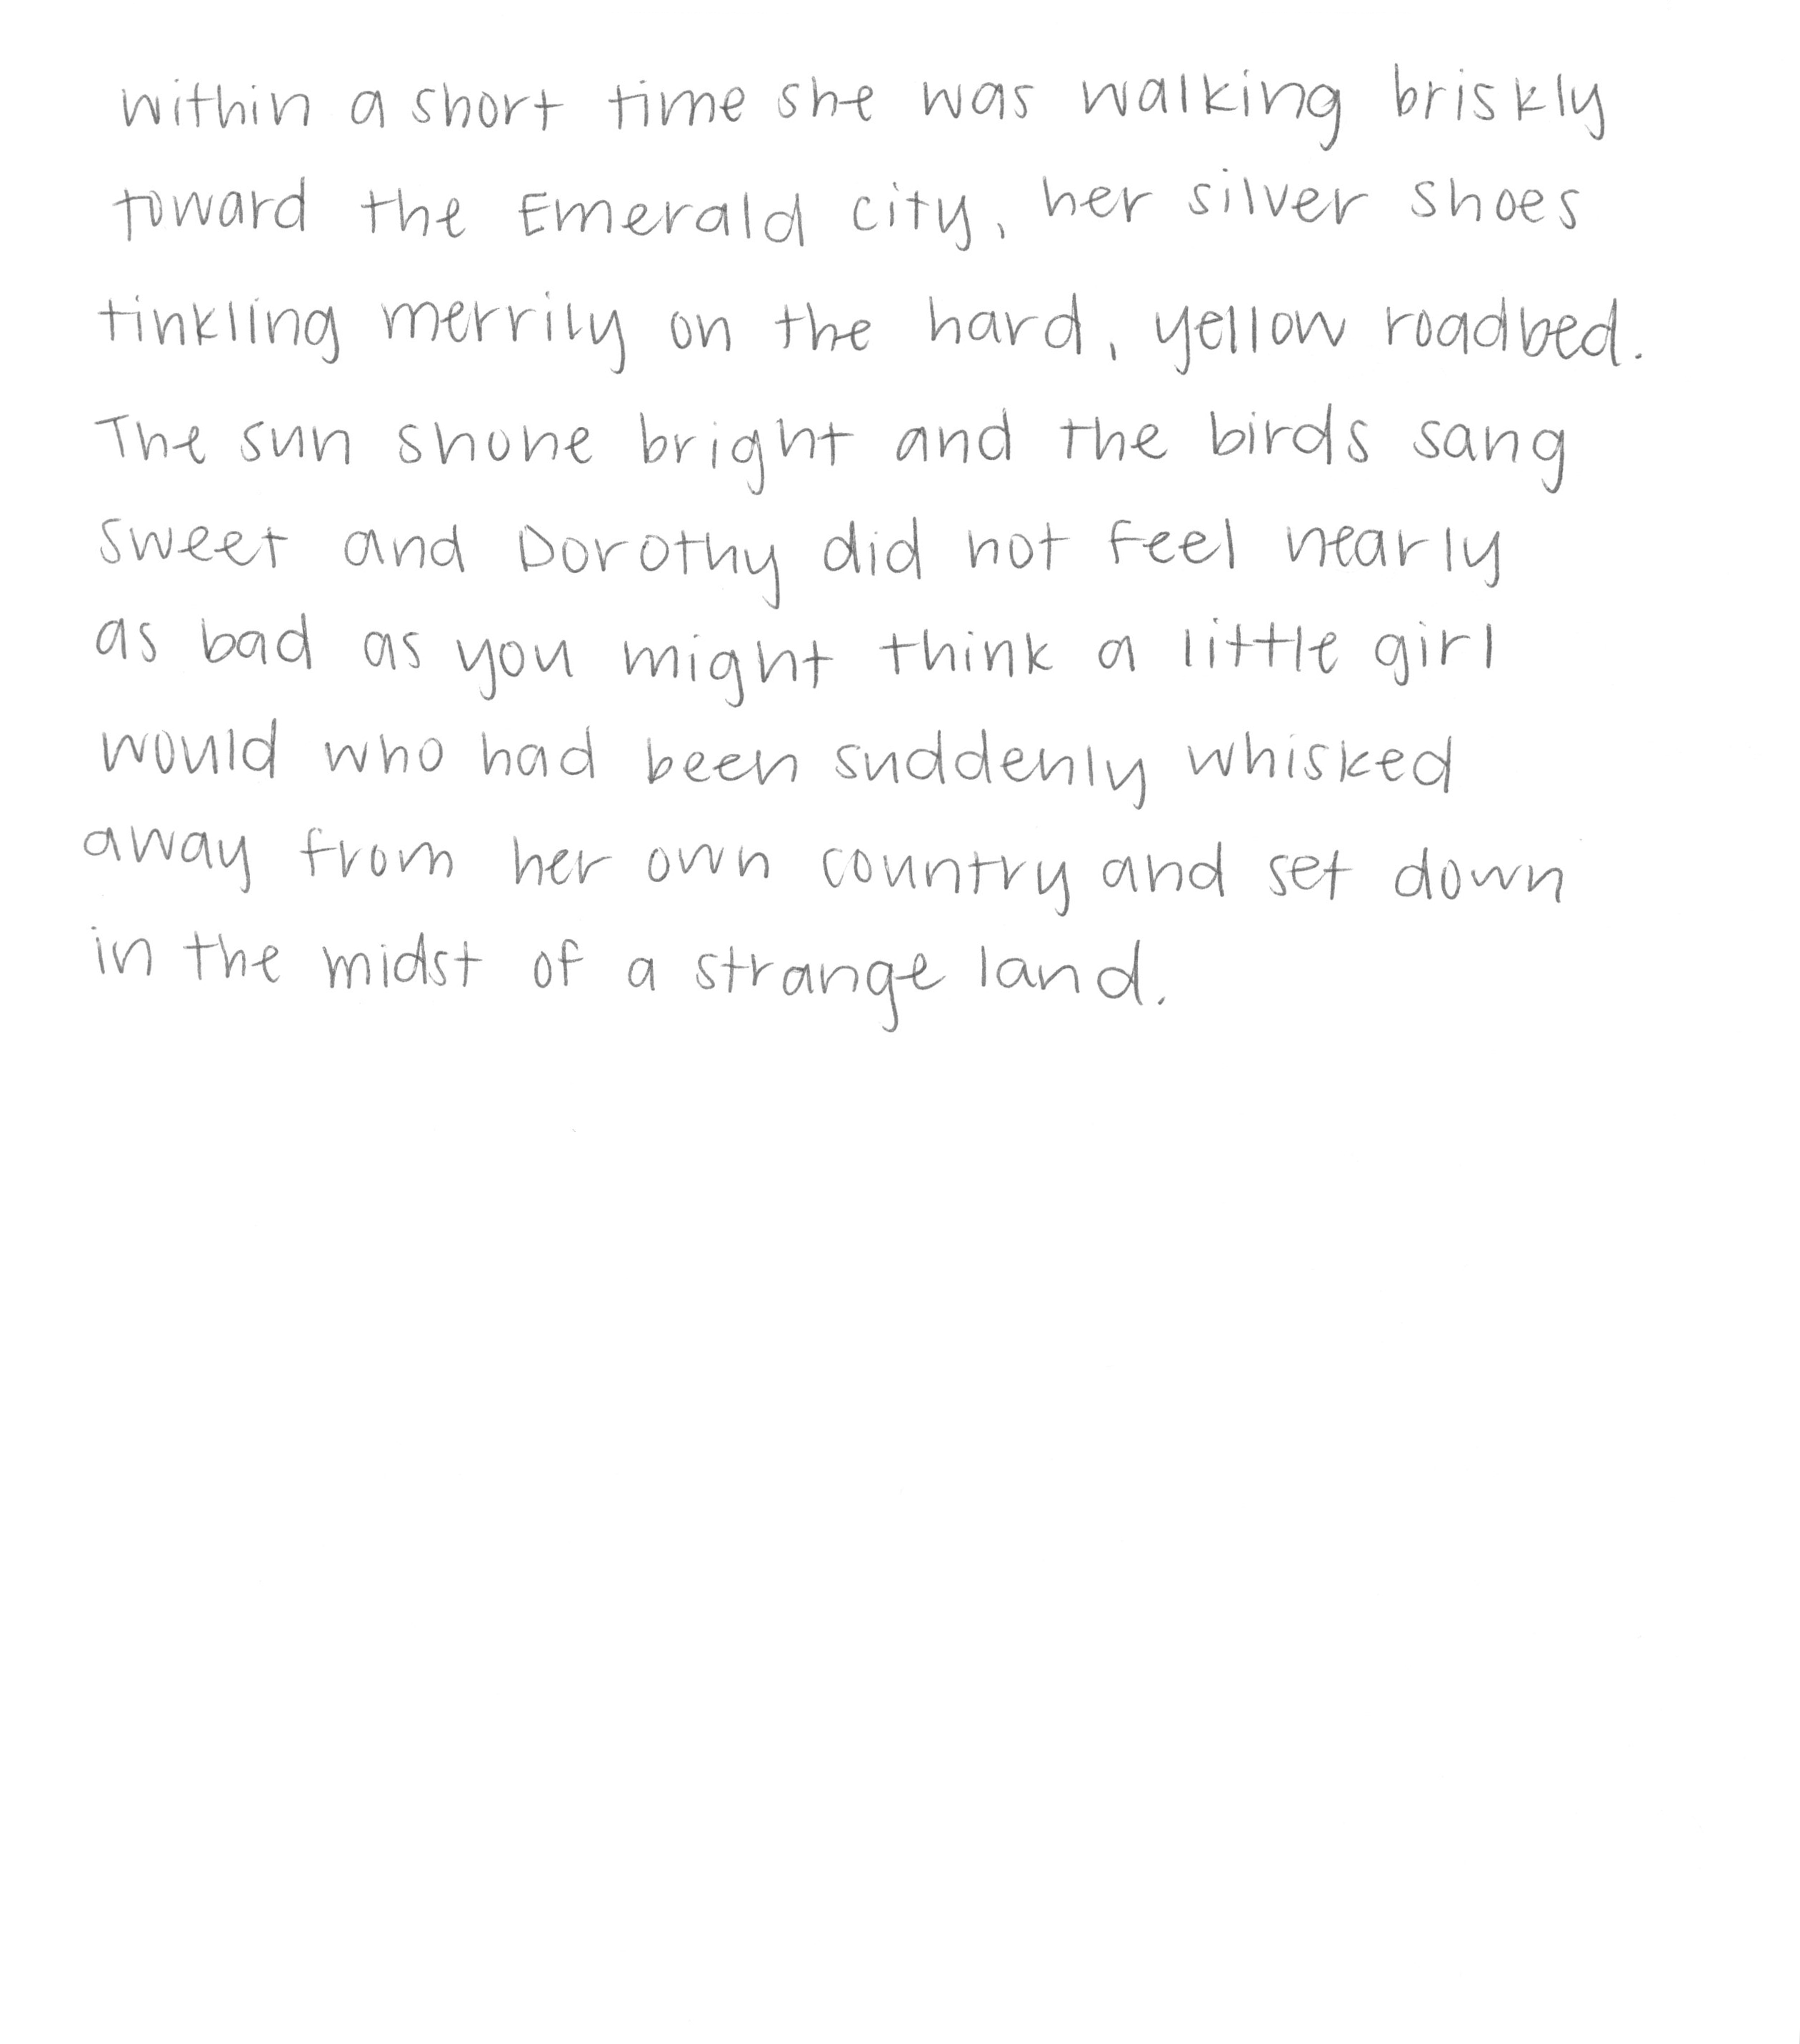 within a short time she was walking briskly
toward the Emerald city, her silver shoes
tinkling merrily on the hard, yellow roadbed.
The sun shone bright and the birds sang
sweet and Dorothy did not feel nearly
as bad as you might think a little girl
would who had been suddenly whisked
away from her own country and set down
in the midst of a strange land.